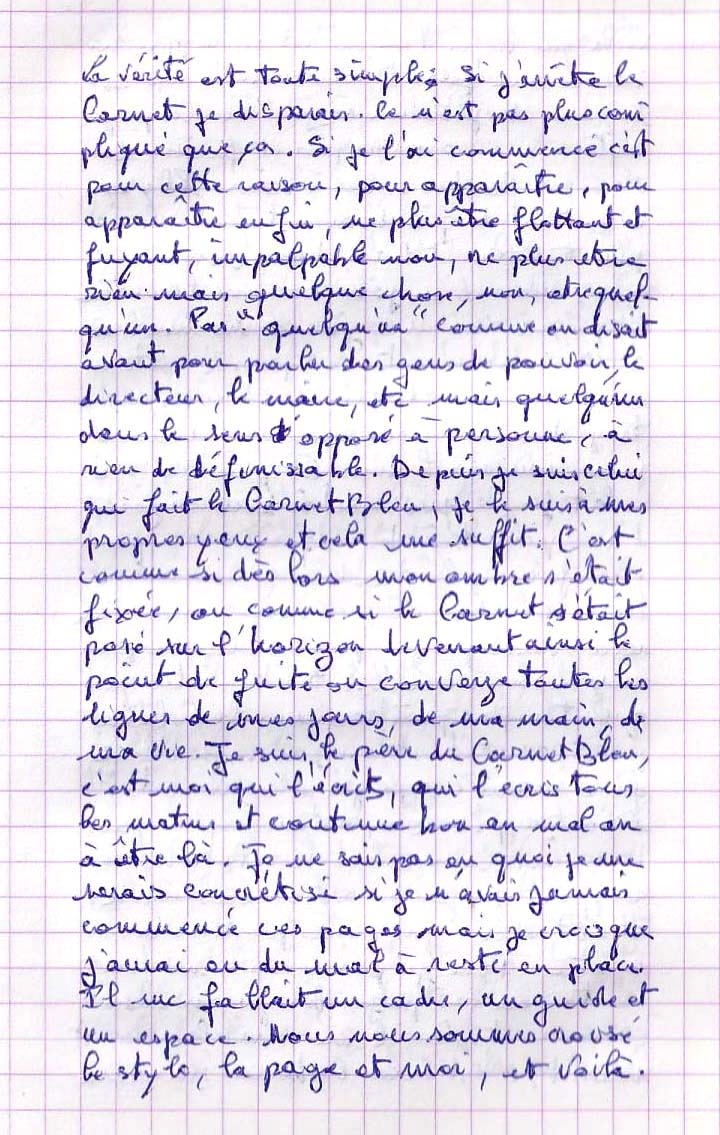 La vérité est toute simple. Si j'arrête le
Carnet je disparais. Ce n'est pas plus com
pliqué que ça. Si je l'ai commencé c'est
pour cette raison, pour apparaître, pour
apparaître enfin, ne plus être flottant et
fuyant, impalpable non, ne plus etre
rien mais quelque chose, non, être quel-
qu'un. Pas "quelqu'un" comme on disait
avant pour parler des gens de pouvoir, le
directeur, le maire, etc mais quelqu'un
dans le sens opposé à personne, à
rien de définissable. Depuis je suis celui
qui fait le Carnet Bleu, je le suis à mes
propres yeux et cela me suffit. C'est
comme si dès lors mon ombre s'était
fixée, ou comme si le Carnet s'était
posé sur l'horizon devenant ainsi le
point de fuite ou converge toutes les
lignes de mes jours, de ma main, de
ma vie. Je suis le père du Carnet Bleu,
c'est moi qui l'écrit, qui l'écris tous
les matins et continue bon an mal an
à être là. Je ne sais pas en quoi je me
serais concrétisé si je n'avais jamais
commencé ces pages mais je crois que
j'aurai eu du mal à resté en place.
Il me fallait un cadre, un guide et
un espace. Nous nous sommes croisé
le stylo, la page et moi, et voilà.